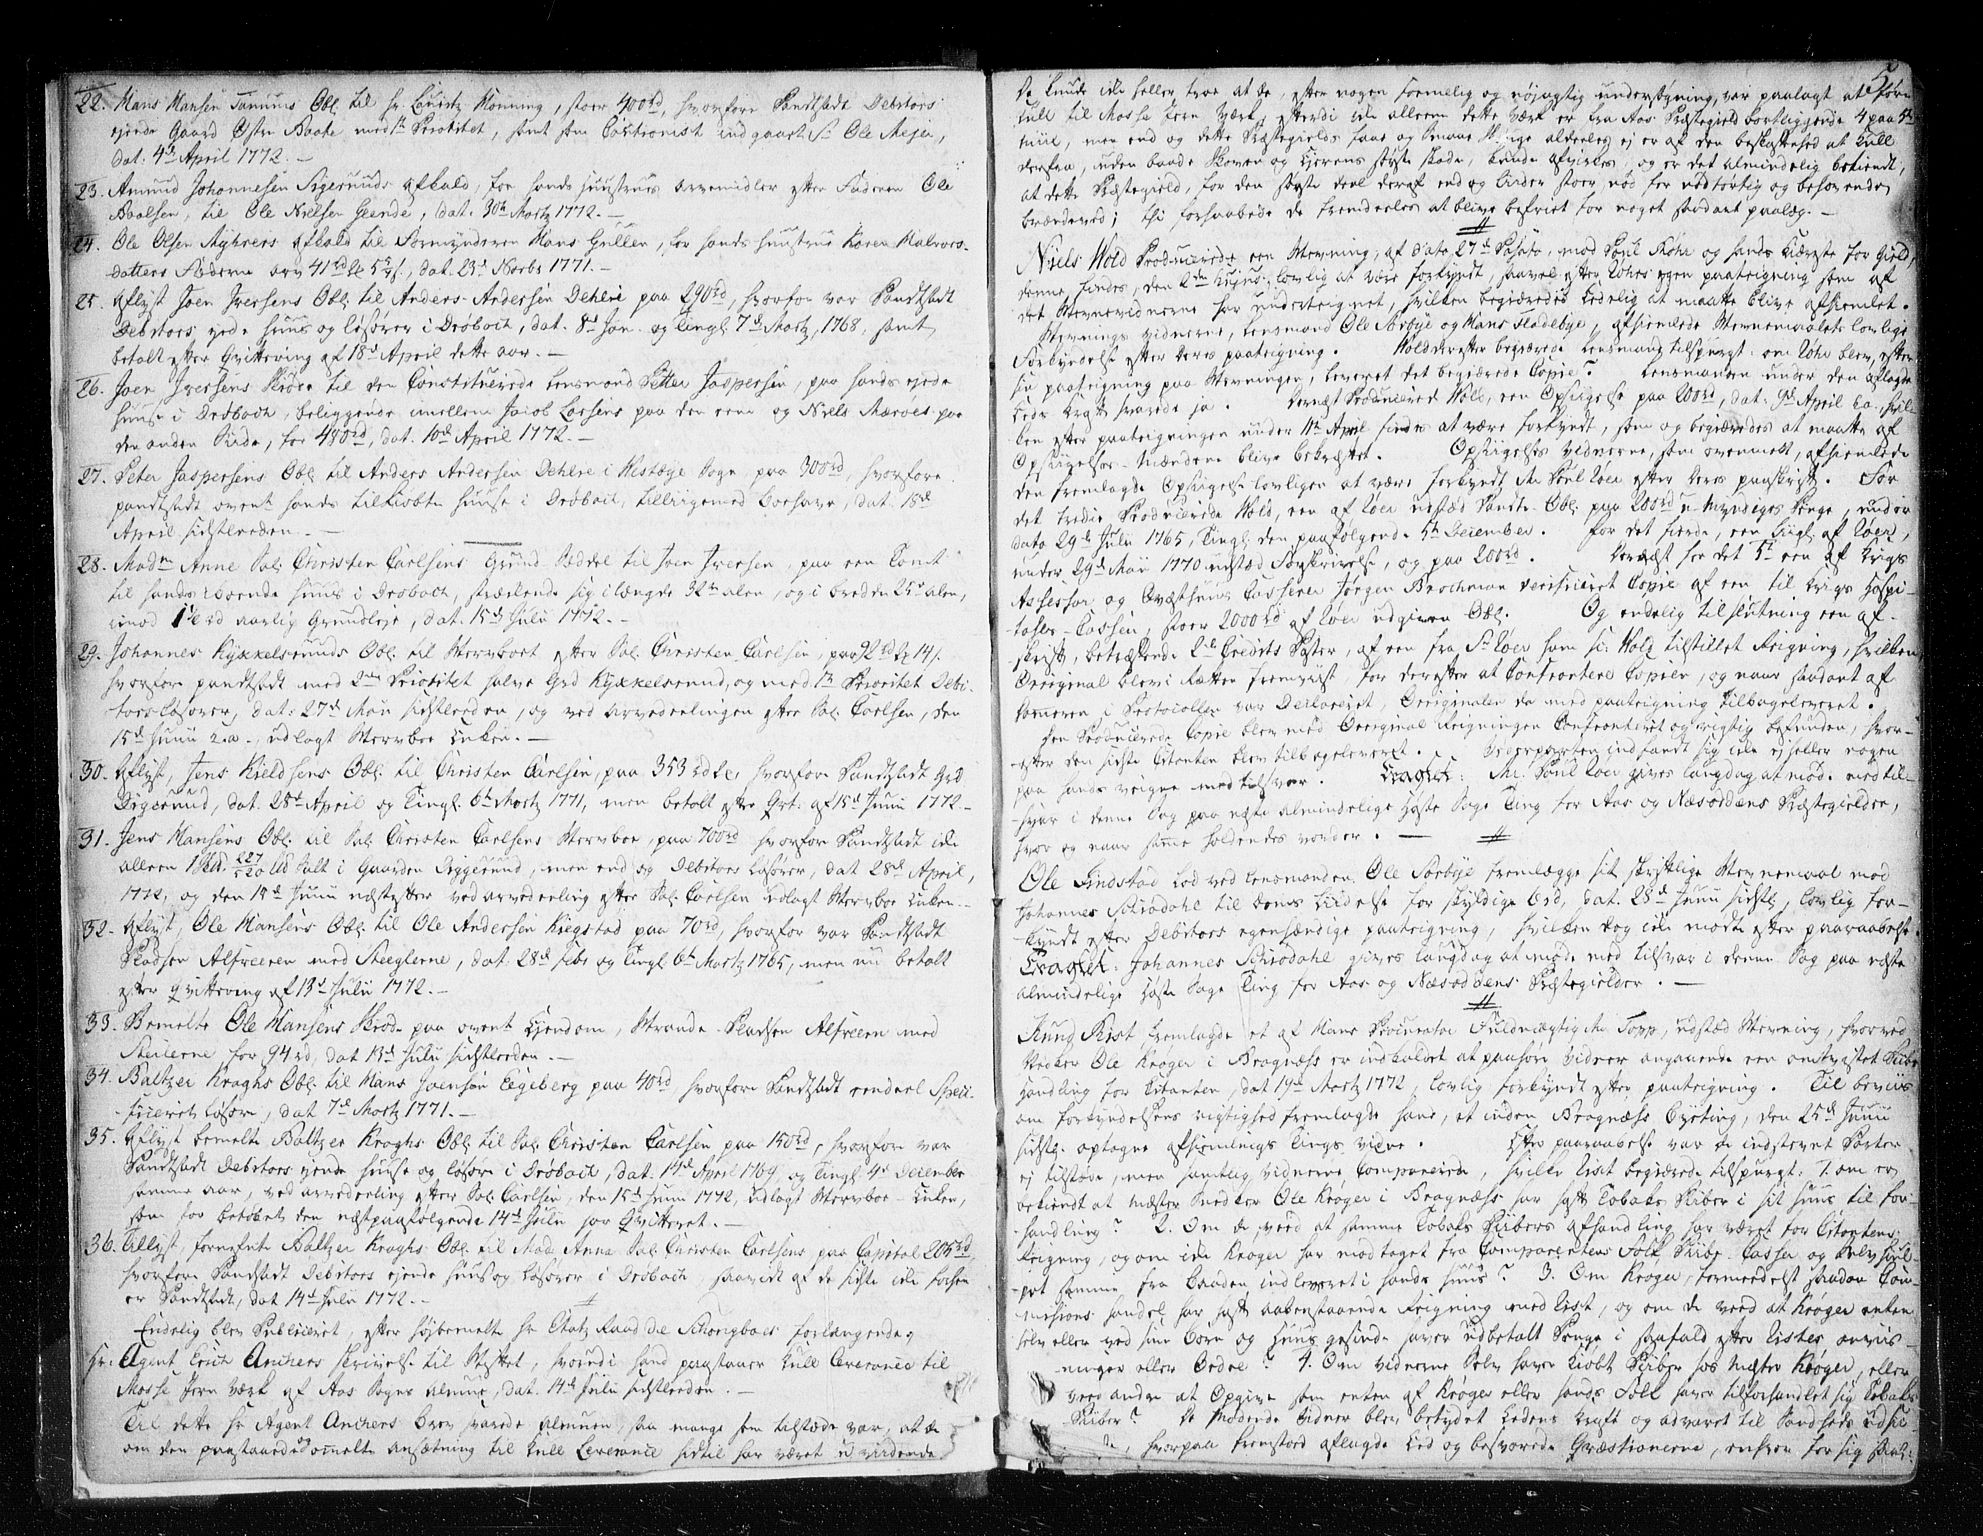 22. Hans Hansen Tamums Obl. til Hr Louritz Rönning, stoer 400rd, hvorfore Pandtsadt Debitors
ejende Gaard Østre Raake med 1te Prioritet, samt som Cautionist indgaaet Sr Ole Mejer,
dat. 4de April 1772. —
23. Amund Johannesen Digeruds afkald, for hands hustrues arvemidler efter Faderen Ole
Paalsen, til Ole Nielsen Geende, dat. 30te Martz 1772. —
24. Ole Olsen Myhrers afkald til Formynderen Hans Gullen, for hands hustrue Karen Halvors-
datters Fæderne arv 41rd, dat. 23de Novbr 1771. —
25. Aflyst Joen Iversens Obl. til Anders Andersen Dehlie paa 290rd, hvorfor var Pandtsadt
Debitors ejende huus og løsøre i Drøbach, dat. 8de Jan. og tingl. 7de Martz 1768, samt
betalt efter Qvittering af 18de April dette aar. —
26. Joen Iversens Skiøde til den Constituerede Lensmand Petter Jaspersen, paa hands ejende
huuse i Drøbach, beliggende imellem Jacob Larsens paa den eene og Niels Marøes paa
den anden Side, for 480rd, dat. 10de April 1772. —
27. Peter Jaspersens Obl. til Anders Andersen Dehlie i Næstøye Sogn, paa 300rd, hvorfore
pandtsadt ovent. hands tilkiøbte huuse i Drøbach, tilligemed Løesøre, dat. 18de
April sidstleeden. —
28. Madme Anne Sal. Christen Carlsens Grund Seddel til Joen Iversen, paa een Tomt
til hands iboende huus i Drøbach, strækende sig i længde 32 alen, og i bredden 25 alen,
imod 1 1/2 rd aarlig Grundleje, dat. 15de Julii 1772. —
29. Johannes Kykkelsruds Obl. til Stervboet efter Sal. Christen Carlsen, paa 92rd 2 14s.
hvorfore pandtsadt med 2den Prioritet halve Grd Kykkelsrud, og med 1te Prioritet Debi-
tors Løsøre, dat. 27de Maii sidstleeden, og ved arvedeelingen efter Sal. Carlsen, den
15de Junii s.a., udlagt Stervboe Enken. —
30. Aflyst, Jens Kieldsens Obl. til Christen Carlsen, paa 353rd, hvorfore Pandtsadt Grd
Digerud, dat. 28de April og Tingl. 6te Martz 1771, men betalt efter Qvt. af 15de Junii 1772 —
31. Jens Hansens Obl. til Sal. Christen Carlsens Stervboe, paa 700rd hvorfor Pandtsadt icke
alleene Salt i Gaarden Diggerud, men end og Debitors Løsøre, dat 28de April,
1772, og den 15de Junii næstefter ved arvedeeling efter Sal. Carlsen udlagt Stervboe Enken. —
32. Aflyst, Ole Hansens Obl. til Ole Andersen Kiegstad paa 70rd, hvorfor var Pandtsadt
Pladsen Alfreeren med Steeglerne, dat. 28de Febr og Tingl. 6te Martz 1765, men nu betalt
efter qvittering af 13de Julii 1772. —
33. Bemelte Ole Hansens Skiøde paa ovent. Ejendom, Strande-Pladsen Alfreern med
Steilerne for 94rd, dat 13de Julii sidstleeden. —
34. Baltzer Kraghs Obl. til Hans Joensen Eegeberg paa 40rd, hvorfore Pandtsadt eendeel Speci-
ficeret Løsøre, dat 7de Martz 1771. —
35. Aflyst bemelte Baltzer Kraghs Obl. til Sal. Christen Carlsen paa 150rd, hvorfore var
Pandtsadt Debitors ejende huuse og løsøre i Drøbach, dat. 14de April 1769, og tingl. 4de December
samme aar, ved arvedeeling efter Sal. Carlsen, den 15de Junii 1772, udlagt Stervboe-Enken,
som for beløbet den næstpaafølgende 14de Julii har Qvitteret. —
36. Tillyst, fornefnte Baltzer Kraghs Obl. til Mad. Anna Sal. Christen Carlsens, paa Capital 205rd,
hvorfore Pandtsadt Debitors ejende huus og Løsøre i Drøbach, saavidt af de sidste icke forhen
er Pandtsadt, dat 14de Julii 1772. —
Endelig blev Publiceret, efter højbemelte Hr Etatz Raad de Schougboes forlangende,
Hr. Agent Erich Anchers skrivelse til Stiftet, hvorudi hand paastaaer Kull Leverance til
Mosse Jern Værk af Aas Sogns Almue, dat. 14de Julii sidstleeden. —
Til dette Hr Agent Anchers brev svarede Almuen, saa mange som tilstæde var, at de
om den paastaaede og ommelte ansætning til Kull Leverance hidtil har været uvidende
5.
De kunde icke heller troe at de, efter nogen foremelig og nøjagtig undersøgning, var paalagt at kiøre
kull til Mosse Jern Værk, efterdi icke alleene dette Værk er fra Aas Præstegield bortliggende 4 paa 5te
Miil, men end og dette Præstegields faae og smaae Skouge aldeeles ej er af den beskaffenhed at Kull
derfra, uden baade Skoven og Ejerens største skade, kunde afvirkes, og er det almindelig bekiendt,
at dette Præstegield, for den største deel deraf end og lider stoer nød for nødtørtig og behøvende
brændeved; thi forhaabede de fremdeeles at blive befriet for noget saadant paalæg. —
Niels Hold Producerede een Stevning, af dato 27de Passato, mod Poul Røhr og hands kiæreste for gield,
denne findes, den 2den hujus, lovlig at være forkyndt, saavel efter Røhrs egen paategning som af
det Stevnevidnerne har undertegnet, hvilken begieredes Eedelig at maatte blive afhiemlet.
Stevnings vidnerne, Lensmand Ole Sørbye og Hans Fladebye, afhiemlede Stevnemaalets lovlige
Forkyndelse efter deres paategning. Hold derefter begierede Lensmand tilspurgt: om Røhr blev, efter
sin paategning paa Stevningen, leveret det begierede Copie? Lensmanden under den aflagde
Eeds Kraft svarede ja. Dernæst Producerede Hold, een Opsigelse paa 200rd, dat. 9de April s.a., hvil-
ken efter paategningen under 11te April findes at være forkyndt, som og begieredes at maatte af
Opsiigelses-Mændene blive bekræftet. Opsiigelses vidnerne, som ovenmelt, afhiemlede
den fremlagde Opsigelse lovligen at være forkyndt Mr. Poul Røer efter deres paaskrift. For
det tredie Producerede Hold, een af Røer udstæd Pandte-Obl. paa 200rd u-myndiges Penge, under
dato 29de Julii 1765, Tingl. den paafølgende 5te December. For det fierde, een ligl. af Røer,
under 29de Maii 1770 udstæd Forskrivelse, og paa 200rd. Dernæst for det 5te een af Krigs
Assessor og Qvæsthuus Casserer Jørgen Brochman verificeret Copie af een til Krigs Hospi-
tals-Cassen, stoer 2000rd af Røer udgiven Obl. Og endelig til slutning een af-
skrift, betræffende 2de Credits Poster, af een fra Sr Røer ham Sr. Hold tilstillet Reigning, hvilken
Original blev i Retten fremviist, for derefter at Confrontere Copien, og naar saadant af
Skriveren i Protocollen var Declareret, Originalen da med paategning tilbageleveret.
Den Producerede Copie blev med Original Reigningen Confronteret og rigtig befunden, hvor-
efter den sidste Citanten blev tilbageleveret. Vederparten indfandt sig icke ej heller nogen
paa hands veigne med tilsvar. Eragtet: Mr. Poul Røer gives laugdag at møde med til-
svar i denne Sag paa næste almindelige Høste Sage Ting for Aas og Næsoddens Præstegielder,
hvor og naar samme holdendes vorder. —
Ole Findstad lod ved Lensmanden Ole Sørbye fremlægge sit skriftlige Stevnemaal mod
Johannes Skrødahl til doms Lidelse for skyldige 6rd, dat. 23de Junii sidstl., lovlig for-
kyndt efter Debitors egenhændige paategning, hvilken dog icke mødte efter paaraabelse.
Eragtet: Johannes Skrødahl gives laugdag at møde med tilsvar i denne Sag paa næste
almindelige Høste Sage Ting for Aas og Næsoddens Præstegielder. —
Knud List fremlagde et af Hans Procurator Fuldmægtig Mr. Topp, udstæd Stevning, hvorved
Snedker Ole Krøger i Bragnæss er indkaldet at paahøre Vidner angaaende een omtvistet Piibe
Handling for Citanten, dat 19de Martz 1772, lovlig forkyndt efter paategning. Til beviis
om forkyndelsens rigtighed fremlagde hand, et inden Bragnæss Byeting, den 25de Junii
sidstl. optagne afhiemlnings Tings vidne. Efter paaraabelse var de indstevnt Parter
ej tilstæde, men samtlig Vidnerne Comparerede, hvilke List begierede tilspurgt: 1. om er
bekiendt at Mæster Snedker Ole Krøger i Bragnæss har haft Tobaks Piiber i sit huus til for-
handling? 2. Om de veed at samme Tobaks Piibers afhandling har været for Citantens
Reigning, og om icke Krøger har modtaget fra Comparentens Folk Piibe Casser og selv hiul-
pet samme fra Baaden indleveret i hands huus? 3. Om Krøger, formedelst saadan Com-
missions handel har haft aabenstaaende Reigning med List, og om de veed at Krøger enten
selv eller ved sine børn og huus gesinde haver udbetalt Penge i skafald efter Listes anviis-
ninger eller Ordre? 4. Om Vidnerne selv haver kiøbt Piiber hos Mæster Krøger, eller
veed andre at Opgive som enten af Krøger eller hands Folk haver tilforhandlet sig Tobaks
Piiber? De mødende Vidner blev betydet Eedens Kraft og advaret til Sandheds udsi-
, hvorpaa fremstoed aflagde Eed og besvarede Qvæstionerne, enhver for sig saal: